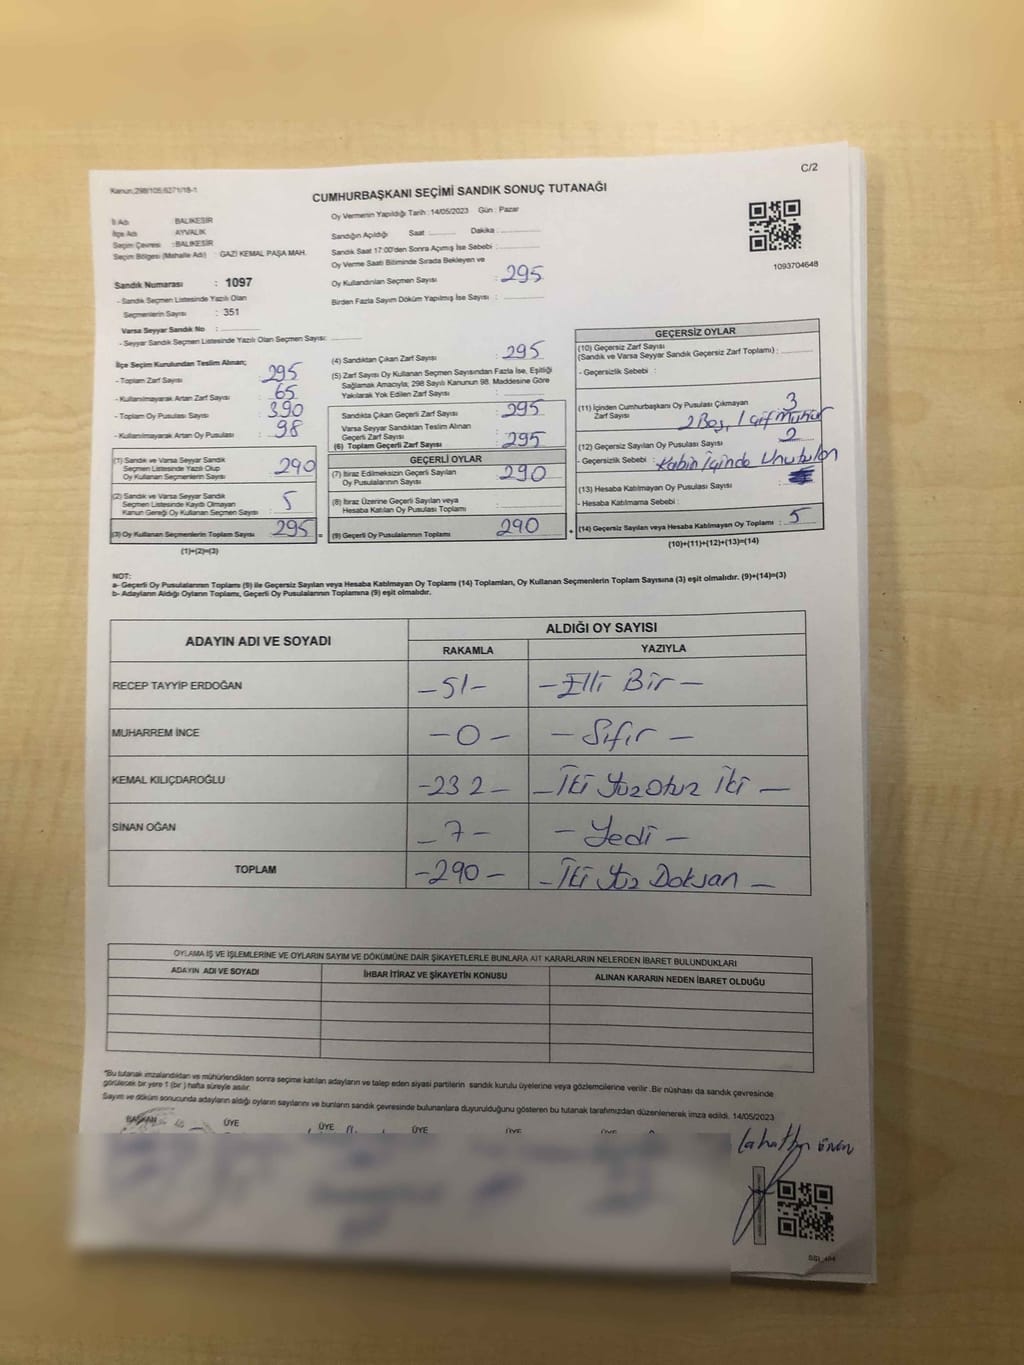 C/2
Kanun:298/105;6271/18-1
CUMHURBAŞKANI SEÇİMİ SANDIK SONUÇ TUTANAĞI
İl Adı : BALIKESİR
İlçe Adı : AYVALIK
Seçim Çevresi : BALIKESİR
Seçim Bölgesi (Mahalle Adı) : GAZİ KEMAL PAŞA MAH.
Sandık Numarası : 1097
- Sandık Seçmen Listesinde Yazılı Olan
Seçmenlerin Sayısı : 351
Varsa Seyyar Sandık No : ............
- Seyyar Sandık Seçmen Listesinde Yazılı Olan Seçmen Sayısı: ............
Oy Vermenin Yapıldığı Tarih : 14/05/2023 Gün : Pazar
Sandığın Açıldığı Saat ............ Dakika : ............
Sandık Saat 17:00'den Sonra Açımış İse Sebebi : ............
Oy Verme Saati Bitiminde Sırada Bekleyen ve
Oy Kullandırılan Seçmen Sayısı : 295
Birden Fazla Sayım Döküm Yapılmış İse Sayısı : ............
1093704648
İlçe Seçim Kurulundan Teslim Alınan;
- Toplam Zarf Sayısı : 295
- Kullanılmayarak Artan Zarf Sayısı : 65
- Toplam Oy Pusulası Sayısı : 390
- Kullanılmayarak Artan Oy Pusulası : 98
(1) Sandık ve Varsa Seyyar Sandık
Seçmen Listesinde Yazılı Olup
Oy Kullanan Seçmenlerin Sayısı : 290
(2) Sandık ve Varsa Seyyar Sandık
Seçmen Listesinde Kayıtlı Olmayan
Kanun Gereği Oy Kullanan Seçmen Sayısı : 5
(3) Oy Kullanan Seçmenlerin Toplam Sayısı : 295 =
(1)+(2)=(3)
(4) Sandıktan Çıkan Zarf Sayısı : 295
(5) Zarf Sayısı Oy Kullanan Seçmen Sayısından Fazla İse, Eşitliği
Sağlamak Amacıyla; 298 Sayılı Kanunun 98. Maddesine Göre
Yakılarak Yok Edilen Zarf Sayısı : ............
Sandıkta Çıkan Geçerli Zarf Sayısı : 295
Varsa Seyyar Sandıktan Teslim Alınan
Geçerli Zarf Sayısı
(6) Toplam Geçerli Zarf Sayısı : 295
GEÇERLİ OYLAR
(7) İtiraz Edilmeksizin Geçerli Sayılan
Oy Pusulalarının Sayısı : 290
(8) İtiraz Üzerine Geçerli Sayılan veya
Hesaba Katılan Oy Pusulası Toplamı : ............
(9) Geçerli Oy Pusulalarının Toplamı : 290 +
GEÇERSİZ OYLAR
(10) Geçersiz Zarf Sayısı
(Sandık ve Varsa Seyyar Sandık Geçersiz Zarf Toplamı) : ............
- Geçersizlik Sebebi :
(11) İçinden Cumhurbaşkanı Oy Pusulası Çıkmayan
Zarf Sayısı : 3
2 Boş, 1 çift Mühür
(12) Geçersiz Sayılan Oy Pusulası Sayısı : 2
- Geçersizlik Sebebi : Kabin İçinde Unutulan
(13) Hesaba Katılmayan Oy Pusulası Sayısı :
- Hesaba Katılmama Sebebi :
(14) Geçersiz Sayılan veya Hesaba Katılmayan Oy Toplamı : 5
(10)+(11)+(12)+(13)=(14)
NOT:
a- Geçerli Oy Pusulalarının Toplamı (9) ile Geçersiz Sayılan veya Hesaba Katılmayan Oy Toplamı (14) Toplamları, Oy Kullanan Seçmenlerin Toplam Sayısına (3) eşit olmalıdır. (9)+(14)=(3)
b- Adayların Aldığı Oyların Toplamı, Geçerli Oy Pusulalarının Toplamına (9) eşit olmalıdır.
ADAYIN ADI VE SOYADI
ALDIĞI OY SAYISI
RAKAMLA YAZIYLA
RECEP TAYYİP ERDOĞAN -51- -Elli Bir-
MUHARREM İNCE -0- -Sıfır-
KEMAL KILIÇDAROĞLU -232- -İki Yüz Otuz İki-
SİNAN OĞAN -7- -Yedi-
TOPLAM -290- -İki Yüz Doksan-
OYLAMA İŞ VE İŞLEMLERİNE VE OYLARIN SAYIM VE DÖKÜMÜNE DAİR ŞİKAYETLERLE BUNLARA AİT KARARLARIN NELERDEN İBARET BULUNDUKLARI
ADAYIN ADI VE SOYADI İHBAR İTİRAZ VE ŞİKAYETİN KONUSU ALINAN KARARIN NEDEN İBARET OLDUĞU
*Bu tutanak imzalandıktan ve mühürlendikten sonra seçime katılan adayların ve talep eden siyasi partilerin sandık kurulu üyelerine veya gözlemcilerine verilir .Bir nüshası da sandık çevresinde
görülecek bir yere 1 (bir ) hafta süreyle asılır.
Sayım ve döküm sonucunda adayların aldığı oyların sayılarını ve bunların sandık çevresinde bulunanlara duyurulduğunu gösteren bu tutanak tarafımızdan düzenlenerek imza edildi. 14/05/2023
BAŞKAN ÜYE ÜYE ÜYE ÜYE ÜYE